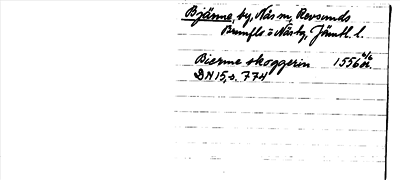 Bjänne, by, Näs sn, Revsunds
Brunflo o Näs tg, Jämtl. l.
Bierme skoggerin 1556 6/6
DN 15, s. 774